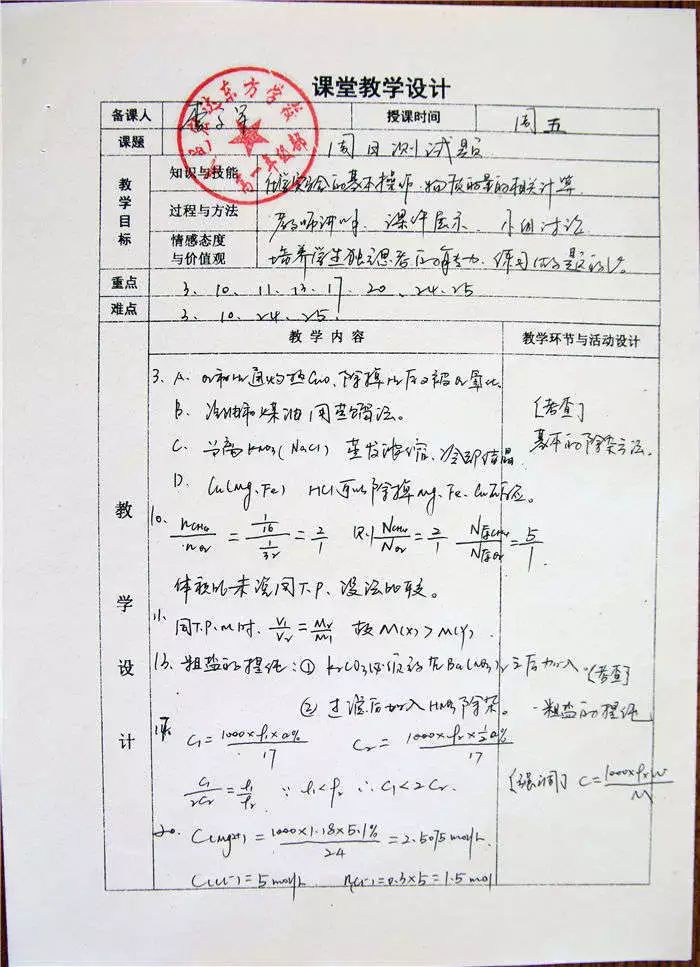 课堂教学设计
备课人
授课时间 周五
东方学校
高一年级部
课题 周日测试题
教学目标
知识与技能 化学实验的基本操作、物质的量的相关计算
过程与方法 教师讲解、课件展示、小组讨论
情感态度与价值观 培养学生独立思考的能力、练习做题的
重点 3、10、11、13、17、20、24、25
难点 3、10、24、25
教学内容 教学环节与活动设计
教学设计
3. A. O2和H2通灼热CuO、除掉H2后又被O2氧化
B. 汽油和煤油用蒸馏法。
C. 分离KNO3(NaCl) 蒸发浓缩、冷却结晶
D. Cu(Mg、Fe) HCl可以除掉Mg、Fe、Cu不反应。
[考查]
基本的除杂方法。
10. nCH4/nO2 = (1/16)/(1/32) = 2/1 则 NCH4/NO2 = 2/1 N原CH4/N原O2 = 5/1
体积比未说同T.P. 没法比较。
11. 同T.P.m时、V1/V2 = M2/M1 故M(X)>M(Y)
13. 粗盐的提纯:① K2CO3必须在Ba(NO3)2之后加入
② 过滤后加入HNO3除杂。
[考查]
粗盐的提纯
17. C1 = 1000×ρ1×a%/17 C2 = 1000×ρ2×½a%/17
C1/2C2 = ρ1/ρ2 ∵ρ1<ρ2 ∴C1<2C2.
[强调] C = 1000×ρ×w/M
20. C(Mg2+) = 1000×1.18×5.1%/24 = 2.5075mol/L
C(Cl-) = 5mol/L nCl- = 0.3×5 = 1.5mol